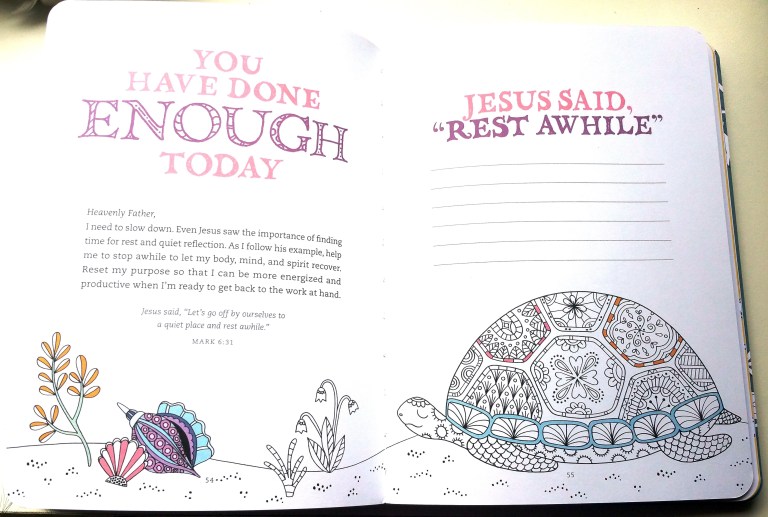 YOU
HAVE DONE
ENOUGH
TODAY
Heavenly Father,
I need to slow down. Even Jesus saw the importance of finding
time for rest and quiet reflection. As I follow his example, help
me to stop awhile to let my body, mind, and spirit recover.
Reset my purpose so that I can be more energized and
productive when I'm ready to get back to the work at hand.
Jesus said, "Let's go off by ourselves to
a quiet place and rest awhile."
MARK 6:31
54
JESUS SAID,
"REST AWHILE"
55